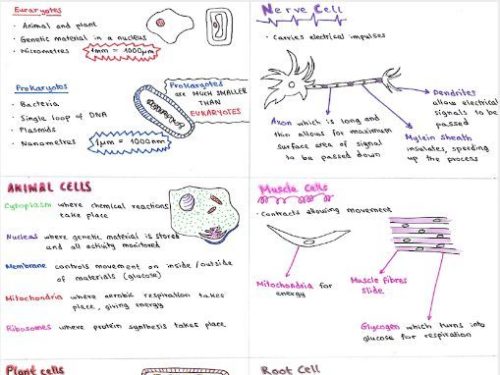 Eucaryotes
· Animal and plant
· Genetic material in a nucleus
· Micrometres
1mm = 1000µm
Prokaryotes
· Bacteria
· Single loop of DNA
· Plasmids
· Nanometres
1µm = 1000nm
Prokaryotes
are MUCH SMALLER
THAN
EUKARYOTES
Nerve Cell
· Carries electrical impulses
Dendrites
allow electrical
signals to be
passed
Axon which is long and
thin allows for maximum
surface area of signal
to be passed down
Myelin sheath
insulates, speeding
up the process
ANIMAL CELLS
Cytoplasm where chemical reactions
take place
Nucleus where genetic material is stored
and all activity monitored
Membrane controls movement on inside/outside
of materials (glucose)
Mitochondria where aerobic respiration takes
place, giving energy
Ribosomes where protein synthesis takes place
Muscle Cells
· Contracts allowing movement
Mitochondria for
energy
Muscle fibres
slide
Glycogen which turns into
glucose for respiration
Plant cells
Root Cell